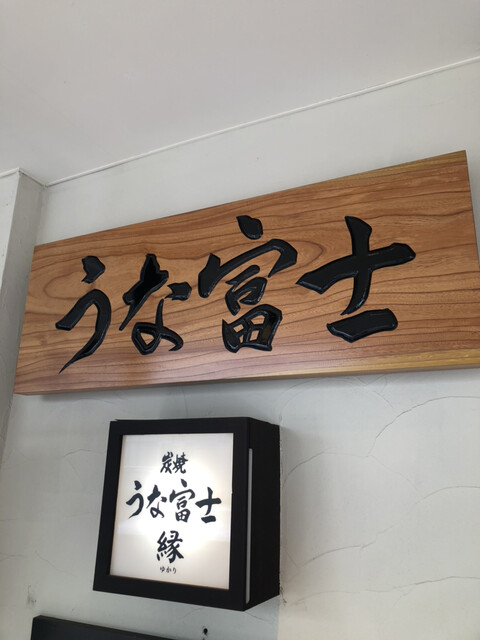 うな富士
炭焼
うな富士
縁
ゆかり